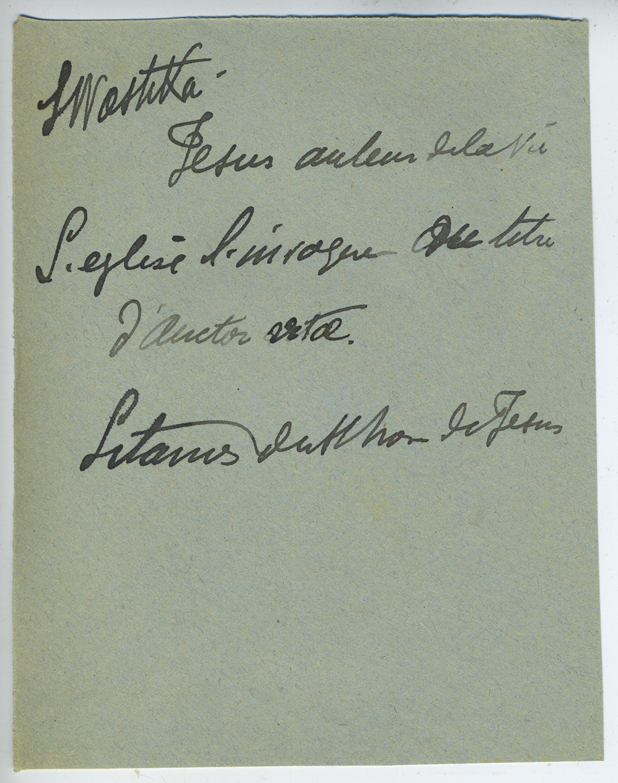 Swastika -
Jesus auteur de la Vie
L'eglise l'invoque au titre
d'auctor vitæ.
Litanies du St Nom de Jesus